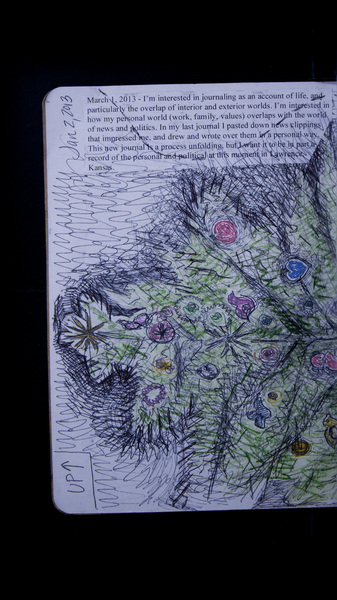 March 1, 2013 - I'm interested in journaling as an account of life, and
particularly the overlap of interior and exterior worlds. I'm interested in
how my personal world (work, family, values) overlaps with the world
of news and politics. In my last journal I pasted down news clippings
that impressed me, and drew and wrote over them in a personal way.
This new journal is a process unfolding, but I want it to be in part a
record of the personal and political at this moment in Lawrence,
Kansas.
Jan 2, 2013
UP↑